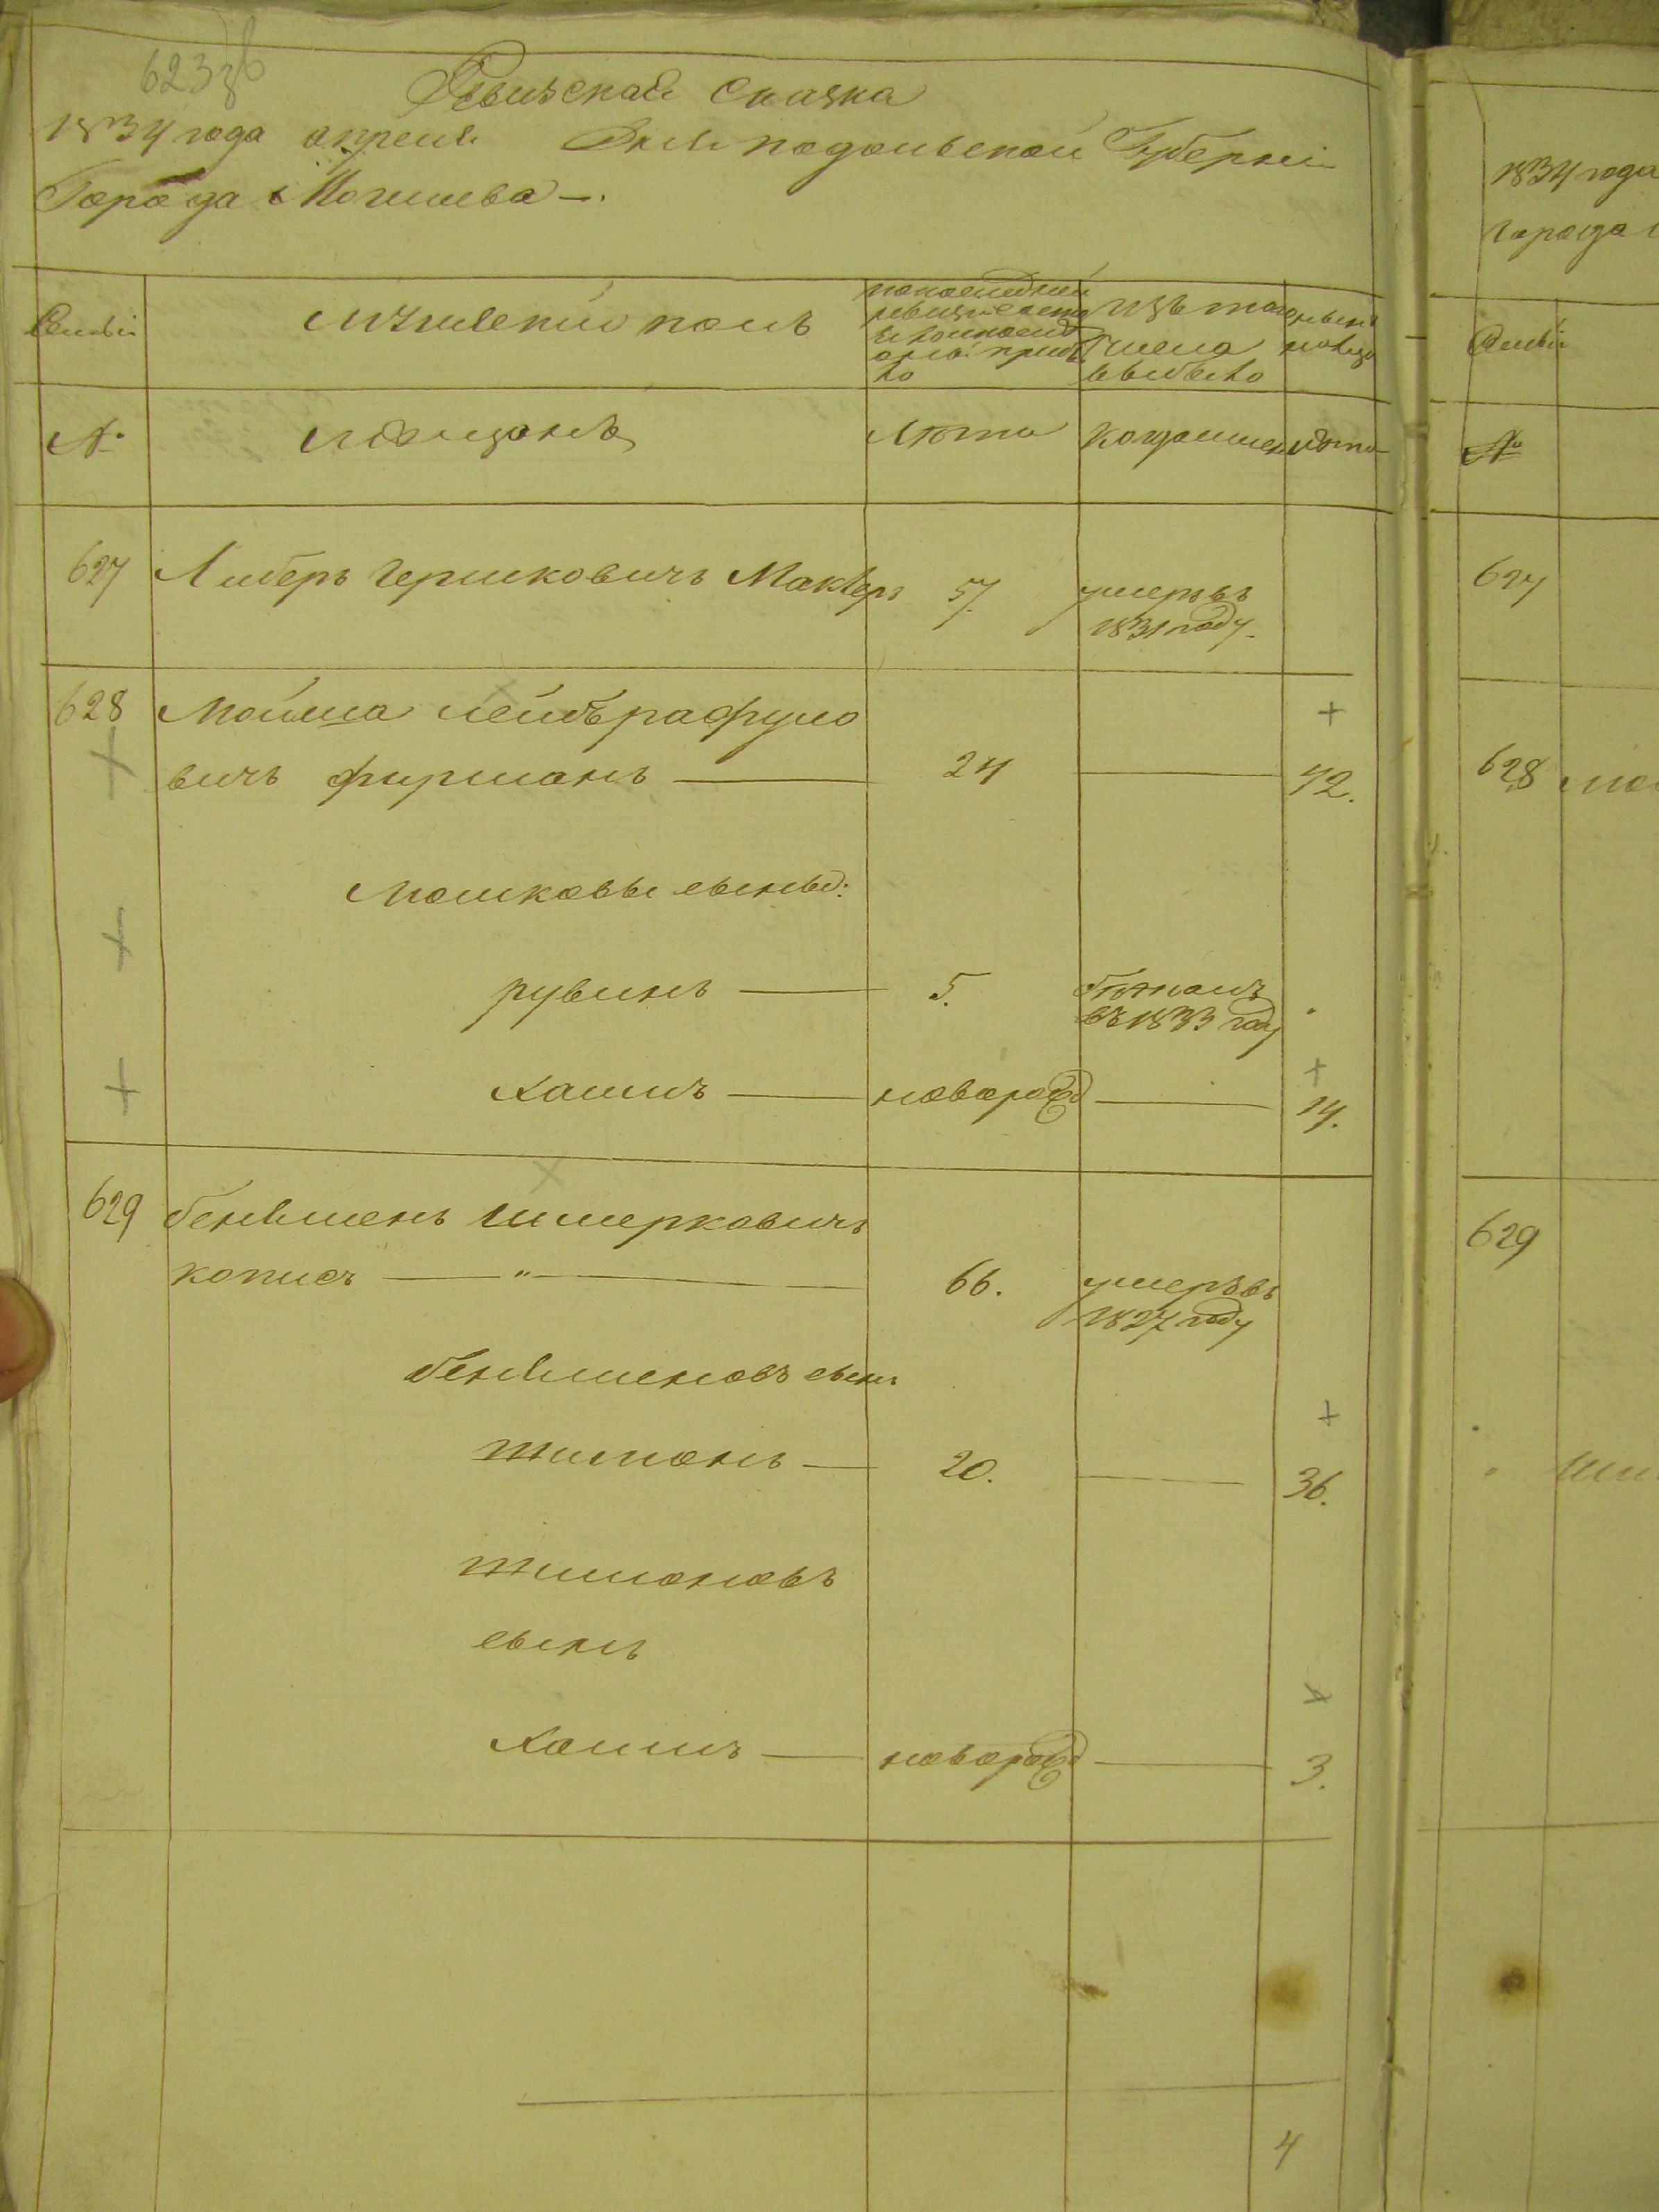 623 об
Ревизская Сказка
1834 года апреля Дня подольской Губерніи
Города Могилева —.
Семьи
мужеский полъ
по последней ревизіи состояло и после оной прибыло
Изъ того числа выбыло
ныне налицо
№
мещане
Лета
Когда именно
лета
627 Либеръ Гершковичъ Маклеръ 57. умеръ въ
1831 году.
628 Мошка Лейбъ рафуло +
вичъ фурманъ — 24 — 42.
Мошковы сыны:
рувинъ — 5. бежалъ
въ 1833 году
хаимъ — новорожд — + 14.
629 беніаменъ Шмерковичъ
кописъ — " — 66. умеръ въ
1827 году
беніаменовъ сынъ +
шимонъ — 20. — 36.
шимоновъ
сынъ
хаимъ — новорожд — + 3.
4
1834 года
города
Семьи
№
627
628 Мо
629
Ши